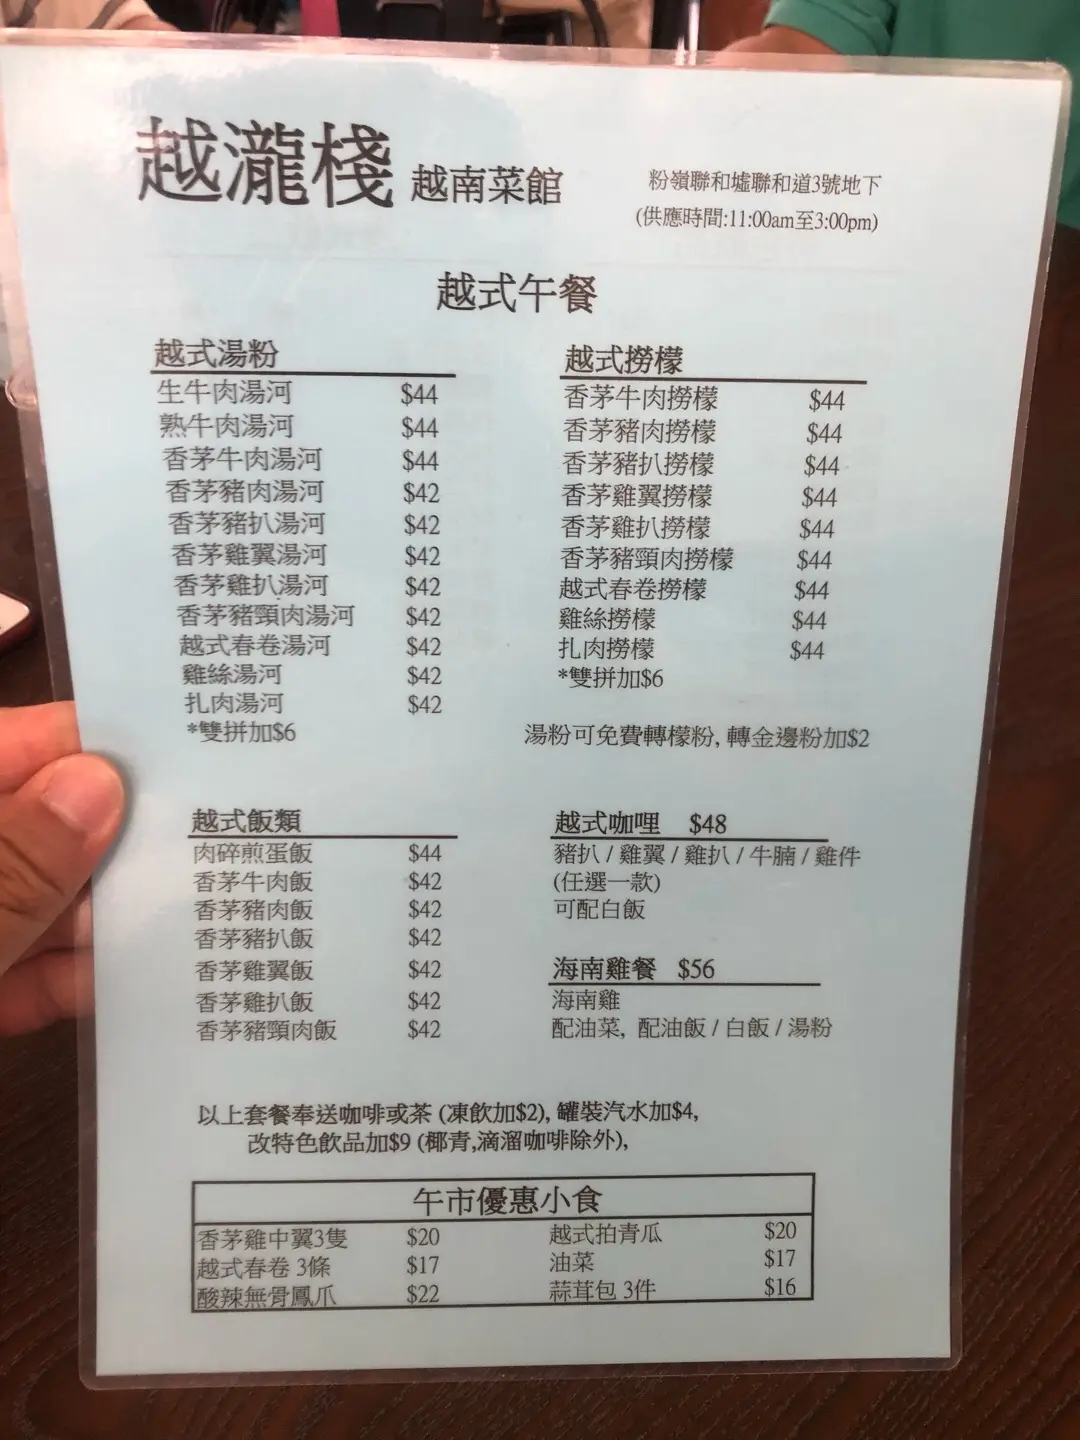 越瀧棧 越南菜館
粉嶺聯和墟聯和道3號地下
(供應時間:11:00am至3:00pm)
越式午餐
越式湯粉
生牛肉湯河 $44
熟牛肉湯河 $44
香茅牛肉湯河 $44
香茅豬肉湯河 $42
香茅豬扒湯河 $42
香茅雞翼湯河 $42
香茅雞扒湯河 $42
香茅豬頸肉湯河 $42
越式春卷湯河 $42
雞絲湯河 $42
扎肉湯河 $42
*雙拼加$6
越式撈檬
香茅牛肉撈檬 $44
香茅豬肉撈檬 $44
香茅豬扒撈檬 $44
香茅雞翼撈檬 $44
香茅雞扒撈檬 $44
香茅豬頸肉撈檬 $44
越式春卷撈檬 $44
雞絲撈檬 $44
扎肉撈檬 $44
*雙拼加$6
湯粉可免費轉檬粉, 轉金邊粉加$2
越式飯類
肉碎煎蛋飯 $44
香茅牛肉飯 $42
香茅豬肉飯 $42
香茅豬扒飯 $42
香茅雞翼飯 $42
香茅雞扒飯 $42
香茅豬頸肉飯 $42
越式咖哩 $48
豬扒 / 雞翼 / 雞扒 / 牛腩 / 雞件
(任選一款)
可配白飯
海南雞餐 $56
海南雞
配油菜, 配油飯 / 白飯 / 湯粉
以上套餐奉送咖啡或茶 (凍飲加$2), 罐裝汽水加$4,
改特色飲品加$9 (椰青,滴溜咖啡除外),
午市優惠小食
香茅雞中翼3隻 $20 越式拍青瓜 $20
越式春卷 3條 $17 油菜 $17
酸辣無骨鳳爪 $22 蒜茸包 3件 $16